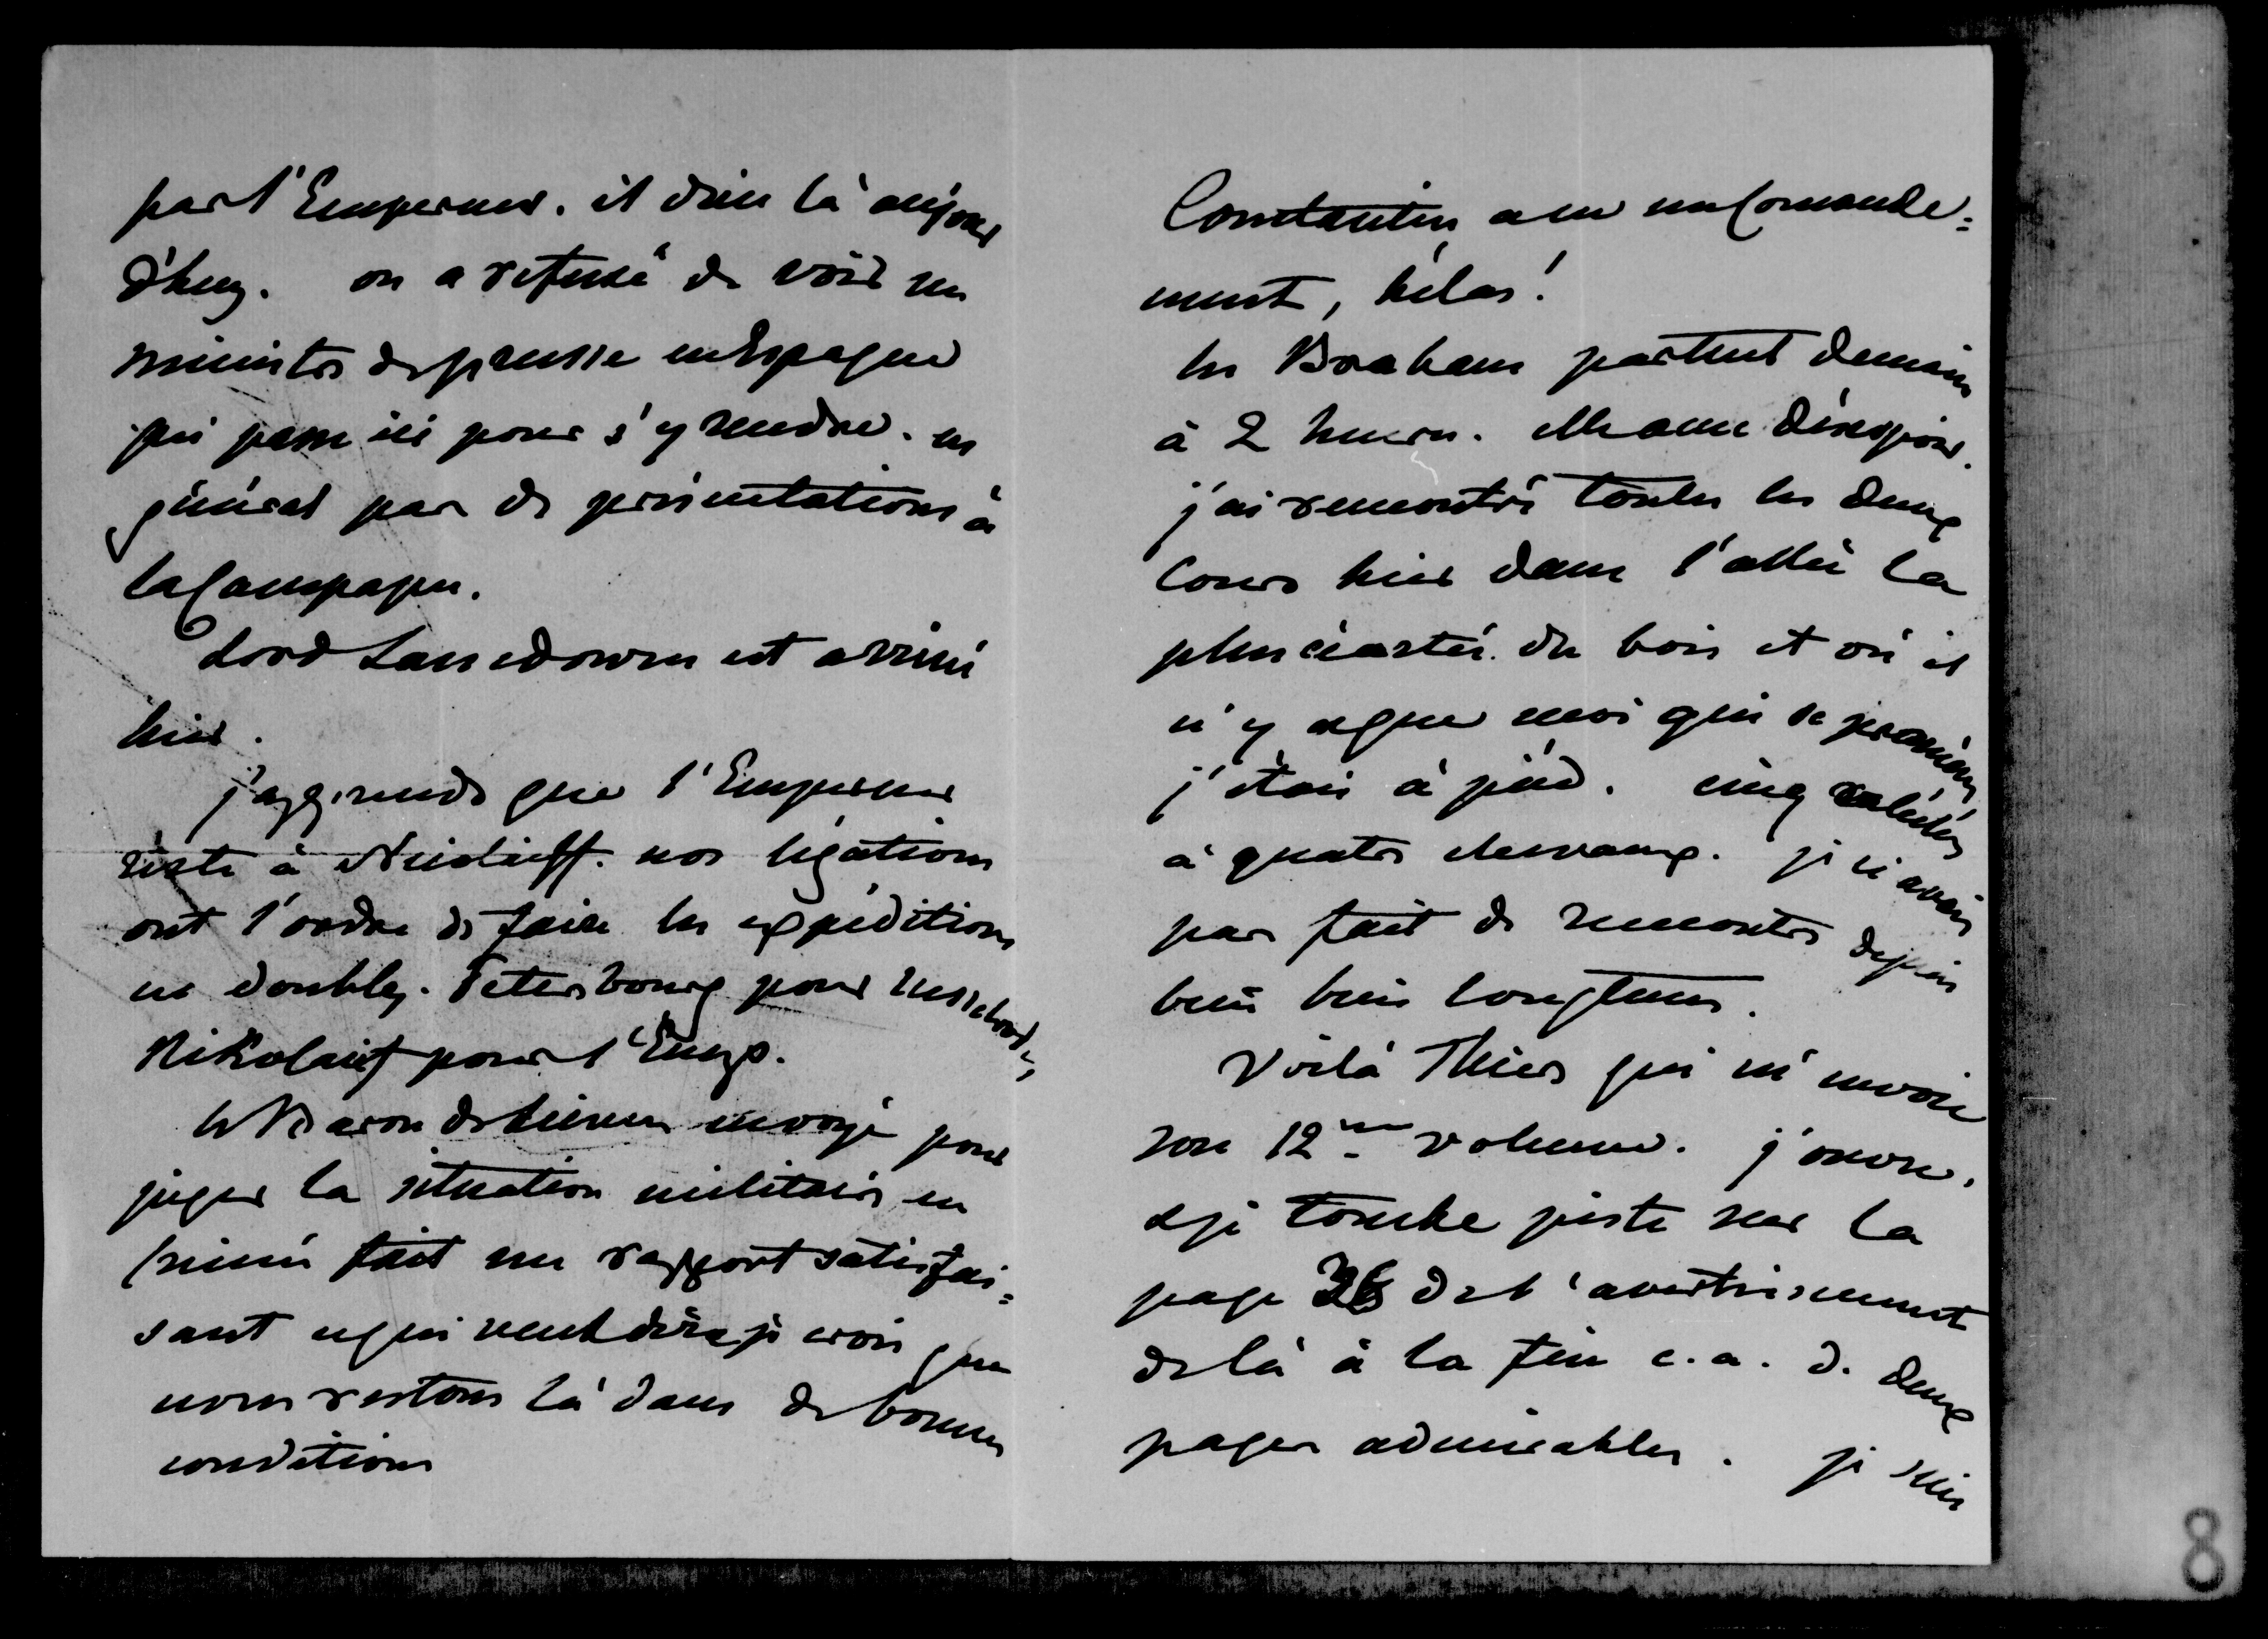 par l'Empereur. il dine là aujour
d'huy. on a refusé de voir un
ministre de prusse en Espagne
qui passe ici pour s'y rendre. en
général pas de présentations à
la Campagne.
Lord Lansdowne est arrivé
hier.
j'apprends que l'Empereur
reste à Nicolaieff. nos légations
ont l'ordre de faire les expéditions
en doubles. Petersbourg pour Nesselrode,
Nikolaief pour l'Emp.
le Baron de envoyé pour
juger la situation militaire en
Crimée fait un rapport satisfai=
sant ce qui veut dire je crois que
nous restons là dans de bonnes
conditions
Constantin a eu un Comande=
ment, hélas!
les Braham partent demain
à 2 heures. elle au désespoir.
j'ai rencontré toutes les deux
Cours hier dans l'allée la
plus écartée du bois et où il
n'y a que moi qui se promène
j'étais à pied. cinq calèches
à quatre chevaux. je n'avais
pas fait de rencontre depuis
bien bien longtems.
Voilà Thiers qui m'envoie
son 12me volume. j'ouvre,
& je tombe juste sur la
page 36 de l'avertissement
de là à la fin c. a. d. deux
pages admirables. je suis
8